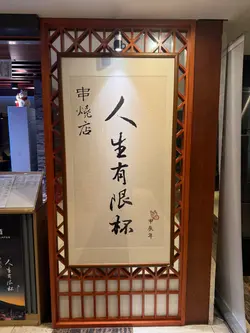 串燒店
人生有限杯
甲辰年
人生有限杯